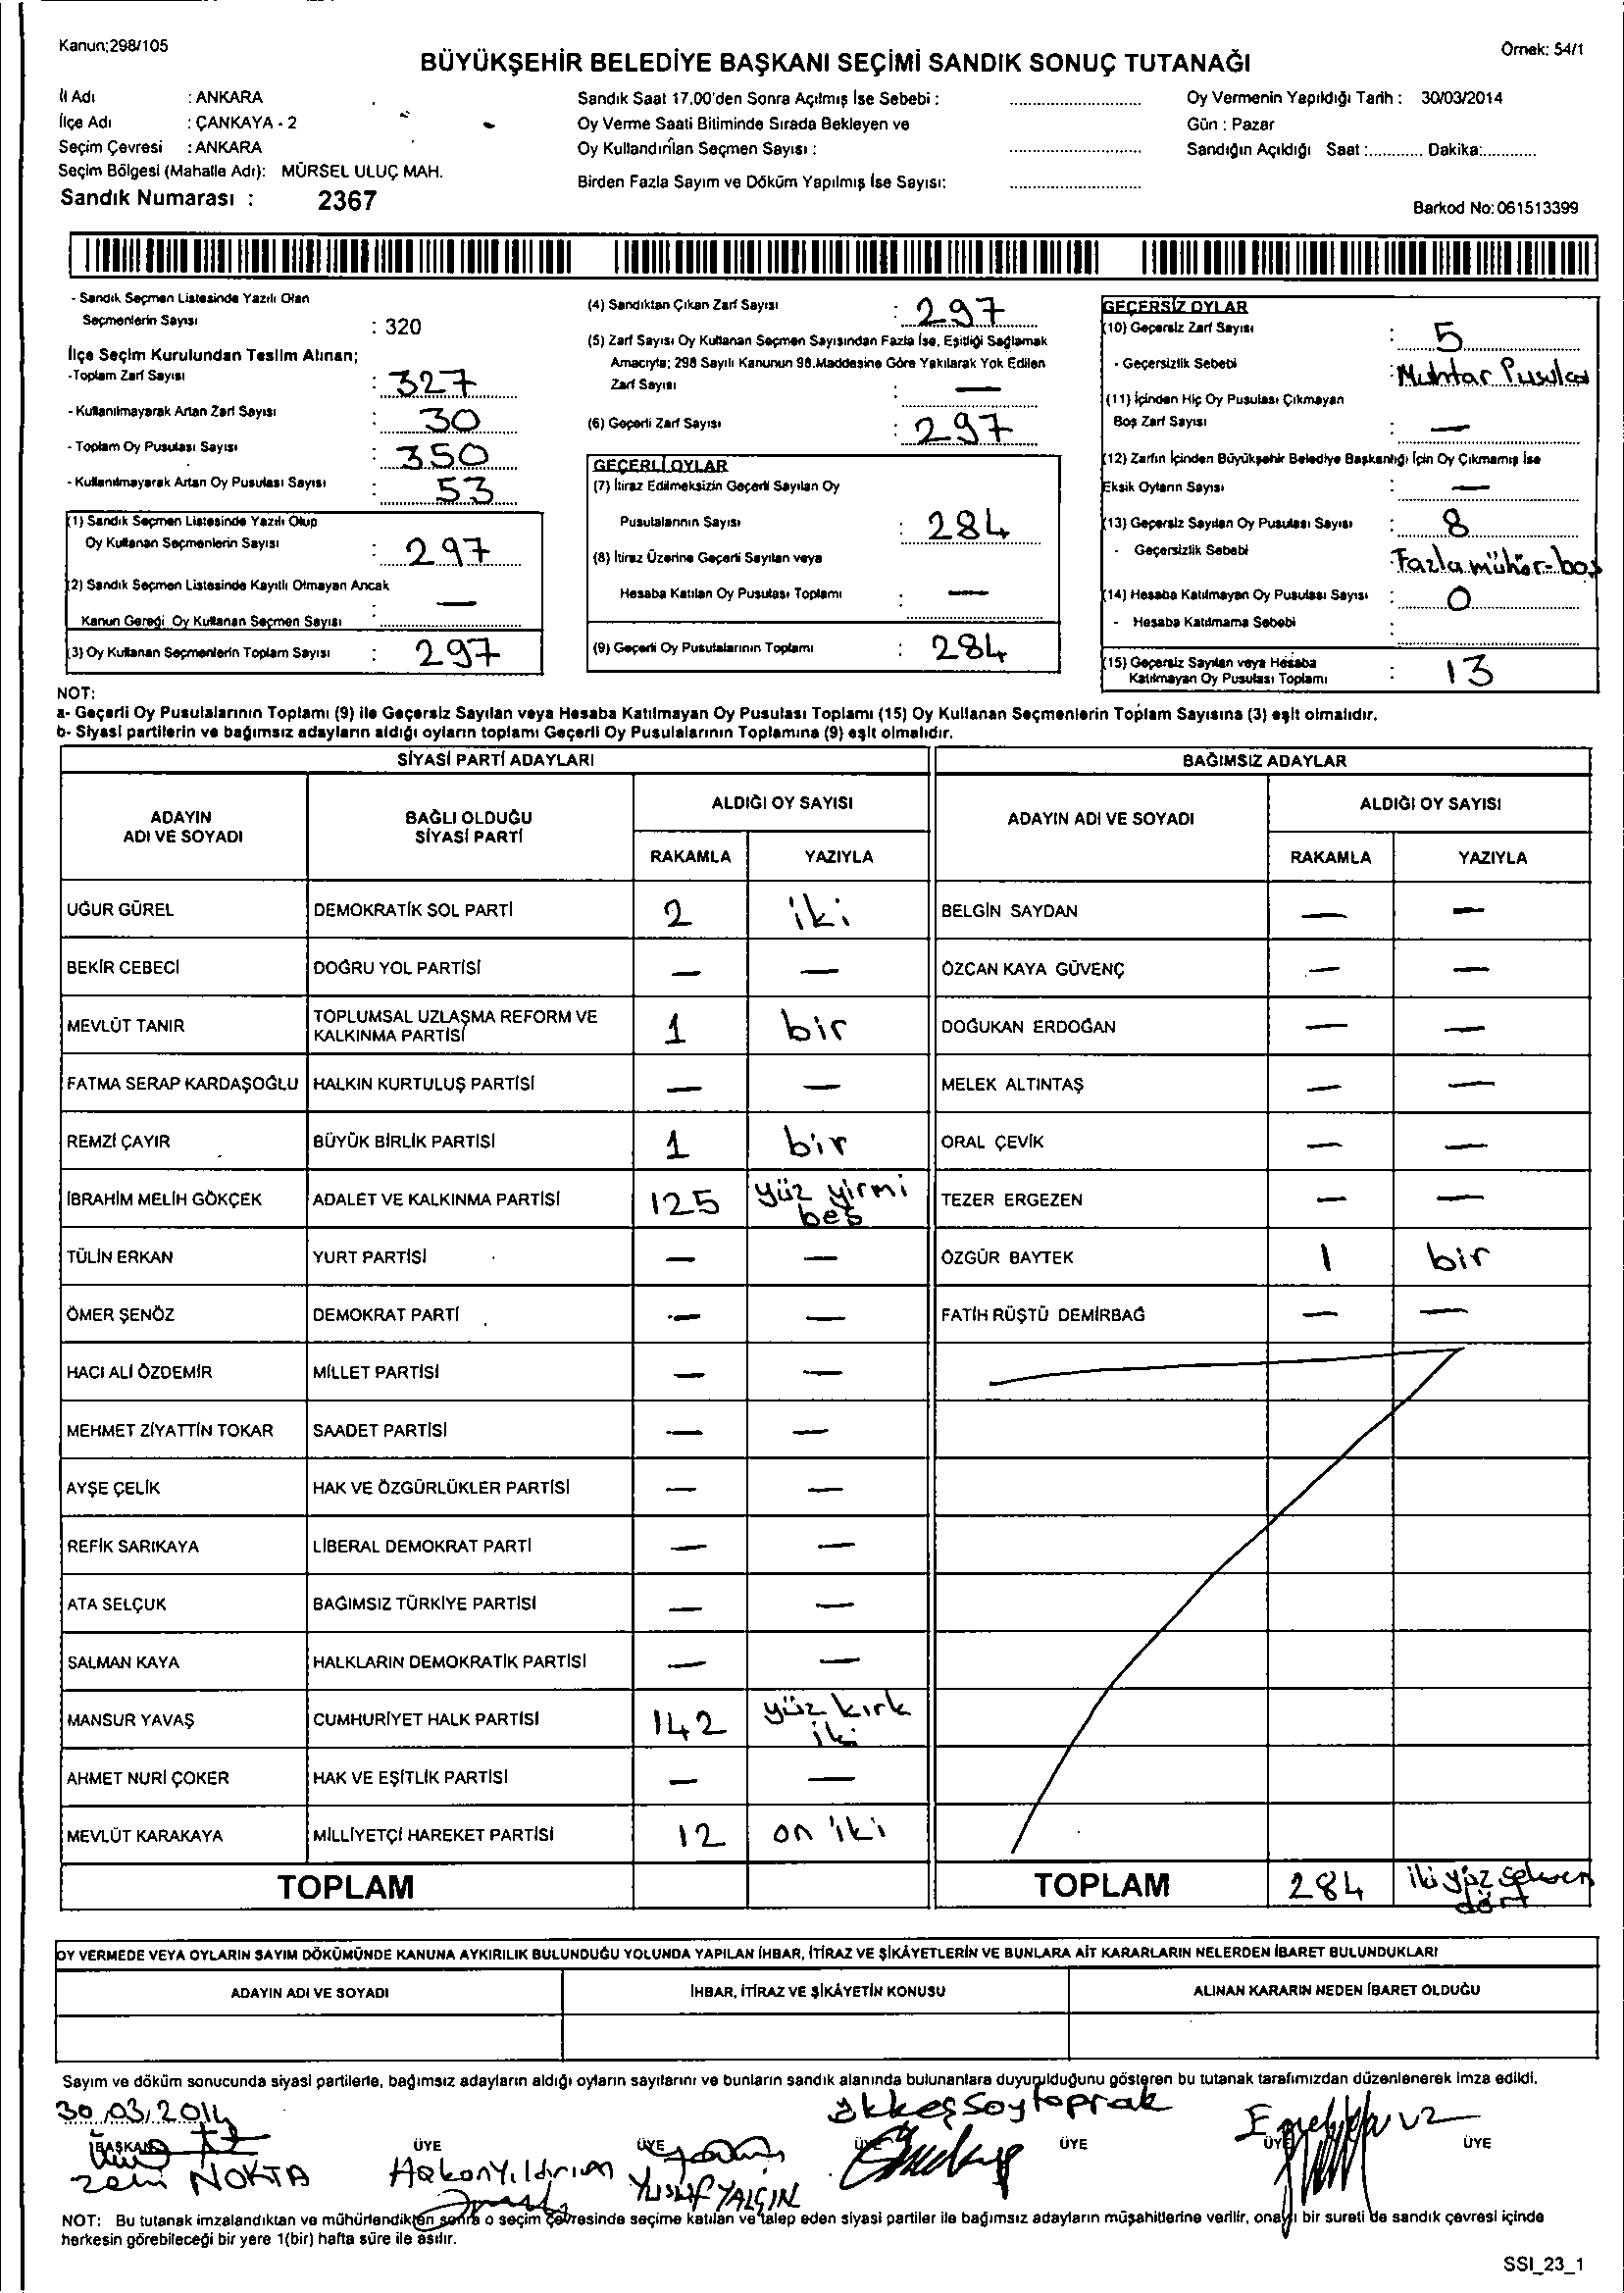 Kanun;298/105
Örnek: 54/1
BÜYÜKŞEHİR BELEDİYE BAŞKANI SEÇİMİ SANDIK SONUÇ TUTANAĞI
İl Adı : ANKARA
İlçe Adı : ÇANKAYA - 2
Seçim Çevresi : ANKARA
Seçim Bölgesi (Mahalle Adı): MÜRSEL ULUÇ MAH.
Sandık Numarası : 2367
Sandık Saat 17.00'den Sonra Açılmış İse Sebebi :
Oy Verme Saati Bitiminde Sırada Bekleyen ve
Oy Kullandırılan Seçmen Sayısı :
Birden Fazla Sayım ve Döküm Yapılmış İse Sayısı:
Oy Vermenin Yapıldığı Tarih : 30/03/2014
Gün : Pazar
Sandığın Açıldığı Saat :............ Dakika:............
Barkod No:061513399
- Sandık Seçmen Listesinde Yazılı Olan
Seçmenlerin Sayısı : 320
İlçe Seçim Kurulundan Teslim Alınan;
-Toplam Zarf Sayısı : 327
- Kullanılmayarak Artan Zarf Sayısı : 30
- Toplam Oy Pusulası Sayısı : 350
- Kullanılmayarak Artan Oy Pusulası Sayısı : 53
(1) Sandık Seçmen Listesinde Yazılı Olup
Oy Kullanan Seçmenlerin Sayısı : 297
(2) Sandık Seçmen Listesinde Kayıtlı Olmayan Ancak
Kanun Gereği Oy Kullanan Seçmen Sayısı : —
(3) Oy Kullanan Seçmenlerin Toplam Sayısı : 297
(4) Sandıktan Çıkan Zarf Sayısı : 297
(5) Zarf Sayısı Oy Kullanan Seçmen Sayısından Fazla İse, Eşitliği Sağlamak
Amacıyla; 298 Sayılı Kanunun 98.Maddesine Göre Yakılarak Yok Edilen
Zarf Sayısı : —
(6) Geçerli Zarf Sayısı : 297
GEÇERLİ OYLAR
(7) İtiraz Edilmeksizin Geçerli Sayılan Oy
Pusulalarının Sayısı : 284
(8) İtiraz Üzerine Geçerli Sayılan veya
Hesaba Katılan Oy Pusulası Toplamı : —
(9) Geçerli Oy Pusulalarının Toplamı : 284
GEÇERSİZ OYLAR
(10) Geçersiz Zarf Sayısı : 5
- Geçersizlik Sebebi : Muhtar Pusulası
(11) İçinden Hiç Oy Pusulası Çıkmayan
Boş Zarf Sayısı : —
(12) Zarfın İçinden Büyükşehir Belediye Başkanlığı İçin Oy Çıkmamış İse
Eksik Oyların Sayısı : —
(13) Geçersiz Sayılan Oy Pusulası Sayısı : 8
- Geçersizlik Sebebi : Fazla mühür-boş
(14) Hesaba Katılmayan Oy Pusulası Sayısı : 0
- Hesaba Katılmama Sebebi :
(15) Geçersiz Sayılan veya Hesaba
Katılmayan Oy Pusulası Toplamı : 13
NOT:
a- Geçerli Oy Pusulalarının Toplamı (9) ile Geçersiz Sayılan veya Hesaba Katılmayan Oy Pusulası Toplamı (15) Oy Kullanan Seçmenlerin Toplam Sayısına (3) eşit olmalıdır.
b- Siyasi partilerin ve bağımsız adayların aldığı oyların toplamı Geçerli Oy Pusulalarının Toplamına (9) eşit olmalıdır.
SİYASİ PARTİ ADAYLARI
BAĞIMSIZ ADAYLAR
ADAYIN ADI VE SOYADI
BAĞLI OLDUĞU SİYASİ PARTİ
ALDIĞI OY SAYISI
RAKAMLA YAZIYLA
ADAYIN ADI VE SOYADI
ALDIĞI OY SAYISI
RAKAMLA YAZIYLA
UĞUR GÜREL DEMOKRATİK SOL PARTİ 2 iki BELGİN SAYDAN — —
BEKİR CEBECİ DOĞRU YOL PARTİSİ — — ÖZCAN KAYA GÜVENÇ — —
MEVLÜT TANIR TOPLUMSAL UZLAŞMA REFORM VE KALKINMA PARTİSİ 1 bir DOĞUKAN ERDOĞAN — —
FATMA SERAP KARDAŞOĞLU HALKIN KURTULUŞ PARTİSİ — — MELEK ALTINTAŞ — —
REMZİ ÇAYIR BÜYÜK BİRLİK PARTİSİ 1 bir ORAL ÇEVİK — —
İBRAHİM MELİH GÖKÇEK ADALET VE KALKINMA PARTİSİ 125 yüz yirmi beş TEZER ERGEZEN — —
TÜLİN ERKAN YURT PARTİSİ — — ÖZGÜR BAYTEK 1 bir
ÖMER ŞENÖZ DEMOKRAT PARTİ — — FATİH RÜŞTÜ DEMİRBAĞ — —
HACI ALİ ÖZDEMİR MİLLET PARTİSİ — —
MEHMET ZİYATTİN TOKAR SAADET PARTİSİ — —
AYŞE ÇELİK HAK VE ÖZGÜRLÜKLER PARTİSİ — —
REFİK SARIKAYA LİBERAL DEMOKRAT PARTİ — —
ATA SELÇUK BAĞIMSIZ TÜRKİYE PARTİSİ — —
SALMAN KAYA HALKLARIN DEMOKRATİK PARTİSİ — —
MANSUR YAVAŞ CUMHURİYET HALK PARTİSİ 142 yüz kırk iki
AHMET NURİ ÇOKER HAK VE EŞİTLİK PARTİSİ — —
MEVLÜT KARAKAYA MİLLİYETÇİ HAREKET PARTİSİ 12 on iki
TOPLAM TOPLAM 284 iki yüz seksen dört
OY VERMEDE VEYA OYLARIN SAYIM DÖKÜMÜNDE KANUNA AYKIRILIK BULUNDUĞU YOLUNDA YAPILAN İHBAR, İTİRAZ VE ŞİKÂYETLERİN VE BUNLARA AİT KARARLARIN NELERDEN İBARET BULUNDUKLARI
ADAYIN ADI VE SOYADI İHBAR, İTİRAZ VE ŞİKÂYETİN KONUSU ALINAN KARARIN NEDEN İBARET OLDUĞU
Sayım ve döküm sonucunda siyasi partilerle, bağımsız adayların aldığı oyların sayılarını ve bunların sandık alanında bulunanlara duyurulduğunu gösteren bu tutanak tarafımızdan düzenlenerek imza edildi.
30.03.2014
Ökkeş Soytoprak
BAŞKAN ÜYE ÜYE ÜYE ÜYE ÜYE ÜYE
NOKTA Hakan Yıldırım Yusuf YALÇIN
NOT: Bu tutanak imzalandıktan ve mühürlendikten sonra o seçim çevresinde seçime katılan ve talep eden siyasi partiler ile bağımsız adayların müşahitlerine verilir, onaylı bir sureti de sandık çevresi içinde
herkesin görebileceği bir yere 1(bir) hafta süre ile asılır.
SSI_23_1